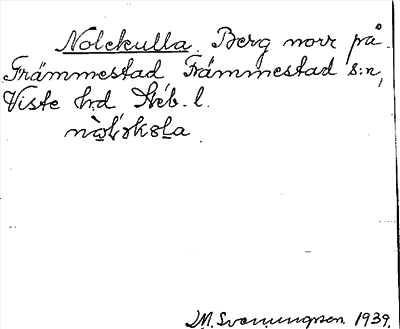 Nolckulla. Berg norr på
Främmestad Främmestad s:n,
Viste hd Skb. l.
M. Svenungsson 1939.